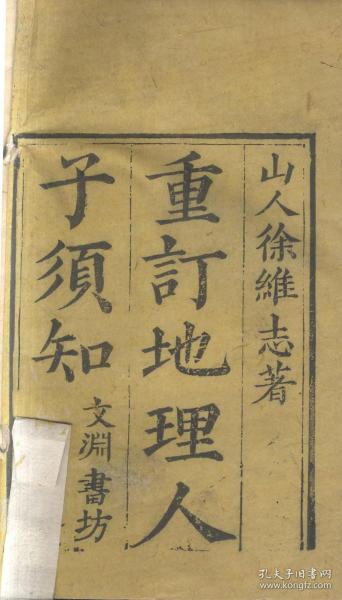 山人徐維志著
重訂地理人
子須知
文淵書坊
孔夫子旧书网